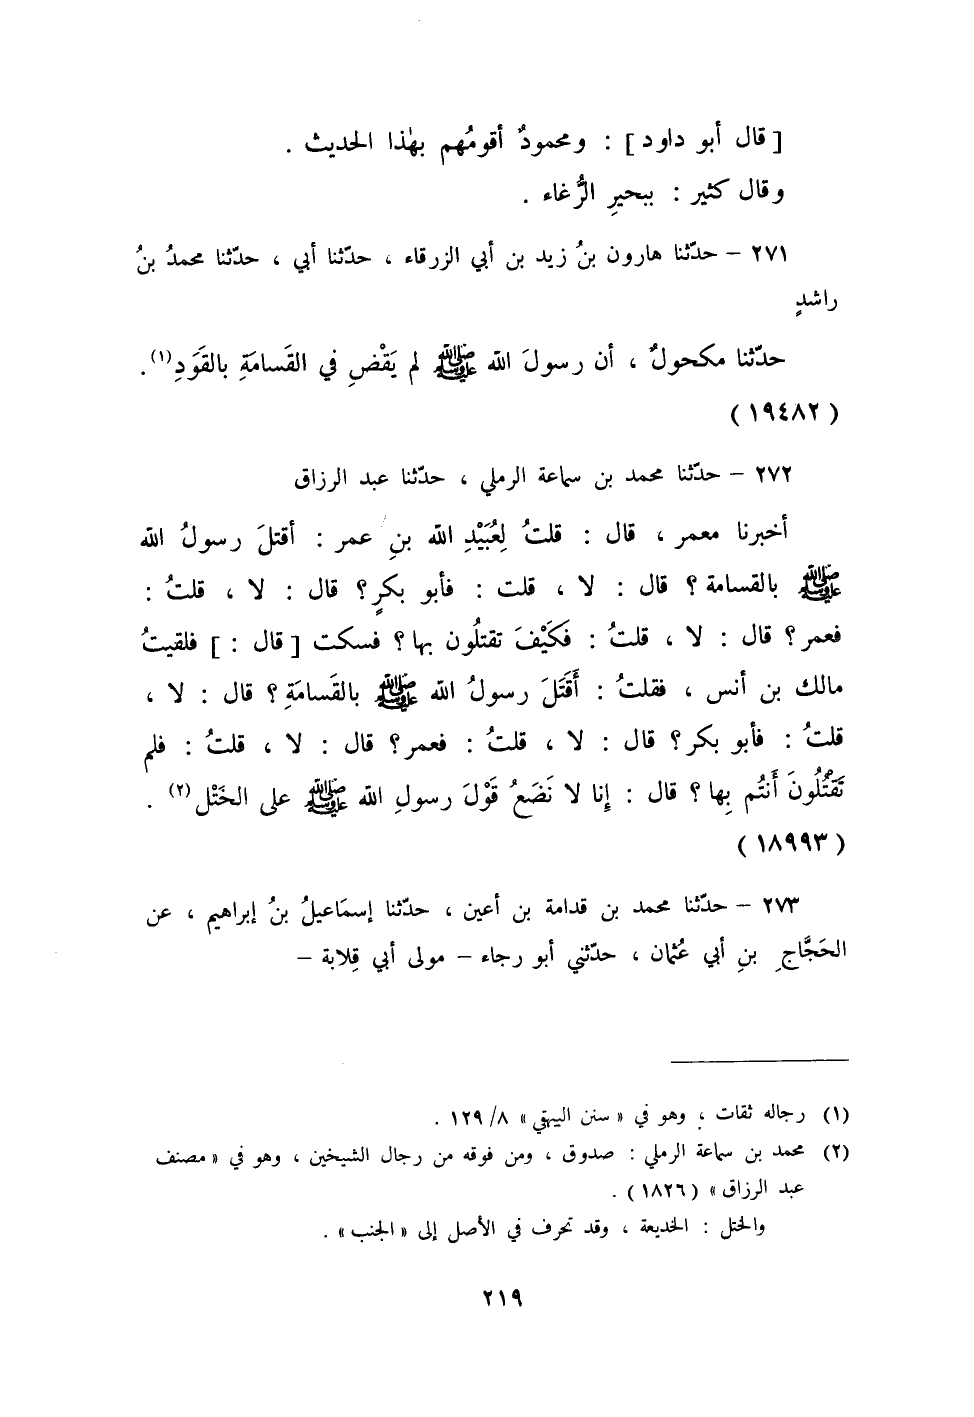 [ قال أبو داود ] : ومحمودٌ أقومُهم بهٰذا الحديث .
وقال كثير : ببحيرِ الرُّغاء .
٢٧١ – حدّثنا هارون بنُ زيد بن أبي الزرقاء ، حدّثنا أبي ، حدّثنا محمدُ بنُ
راشدٍ
حدّثنا مكحولٌ ، أن رسولَ الله ﷺ لم يَقْضِ في القَسامَةِ بالقَوَدِ(١) .
( ١٩٤٨٢ )
٢٧٢ – حدّثنا محمد بن سماعة الرملي ، حدّثنا عبد الرزاق
أخبرنا معمر ، قال : قلتُ لِعُبَيْدِ الله بنِ عمر : أقتلَ رسولُ الله
ﷺ بالقسامة ؟ قال : لا ، قلت : فأبو بكرٍ ؟ قال : لا ، قلتُ :
فعمر ؟ قال : لا ، قلتُ : فكَيْفَ تقتلُون بها ؟ فسكت [ قال : ] فلقيتُ
مالك بن أنس ، فقلتُ : أَقَتَلَ رسولُ الله ﷺ بالقَسامَةِ ؟ قال : لا ،
قلتُ : فأبو بكر ؟ قال : لا ، قلتُ : فعمر ؟ قال : لا ، قلتُ : فلم
تَقْتُلُونَ أَنتُم بِها ؟ قال : إنا لا نَضَعُ قَوْلَ رسولِ الله ﷺ على الخَتْل(٢) .
( ١٨٩٩٣ )
٢٧٣ – حدّثنا محمد بن قدامة بن أعين ، حدّثنا إسمَاعيلُ بنُ إبراهيم ، عن
الحَجَّاجِ بنِ أبي عُثمان ، حدّثني أبو رجاء – مولى أبي قِلابة –
(١) رجاله ثقات ، وهو في « سنن البيهقي » ٨/ ١٢٩ .
(٢) محمد بن سماعة الرملي : صدوق ، ومن فوقه من رجال الشيخين ، وهو في « مصنف
عبد الرزاق » ( ١٨٢٦ ) .
والختل : الخديعة ، وقد تحرف في الأصل إلى « الجنب » .
٢١٩